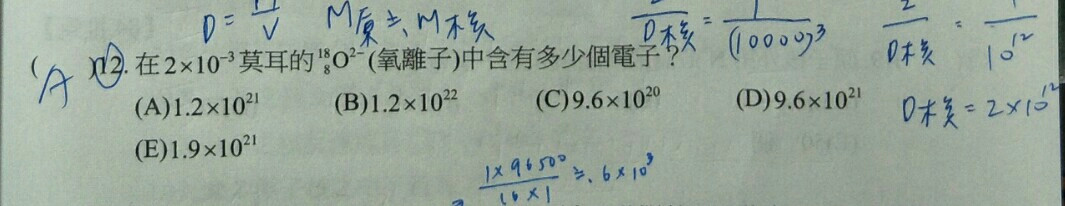 D = M/V M原 ≒ M核 2/D核 = 1/(10000)³ 2/D核 = 1/10¹²
( A )12. 在2×10⁻³莫耳的¹⁸₈O²⁻(氧離子)中含有多少個電子?
(A)1.2×10²¹ (B)1.2×10²² (C)9.6×10²⁰ (D)9.6×10²¹ D核 = 2×10¹²
(E)1.9×10²¹
1×96500/16×1 ≒ 6×10³